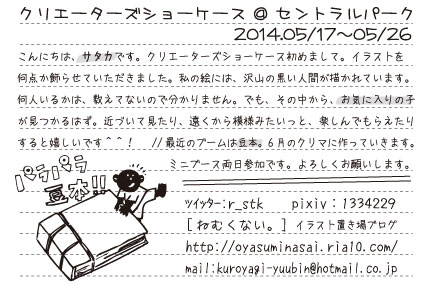 クリエーターズショーケース @ セントラルパーク
2014.05/17～05/26
こんにちは、サタカです。クリエーターズショーケース初めまして。イラストを
何点か飾らせていただきました。私の絵には、沢山の黒い人間が描かれています。
何人いるかは、数えてないので分かりません。でも、その中から、お気に入りの子
が見つかるはず。近づいて見たり、遠くから模様みたいっと、楽しんでもらえたり
すると嬉しいです^^! //最近のブームは豆本。6月のクリマに作っていきます。
ミニブース両日参加です。よろしくお願いします。
パラパラ
豆本!!
ツイッター:r_stk pixiv:1334229
[ねむくない。] イラスト置き場ブログ
http://oyasuminasai.ria10.com/
mail:kuroyagi-yuubin@hotmail.co.jp